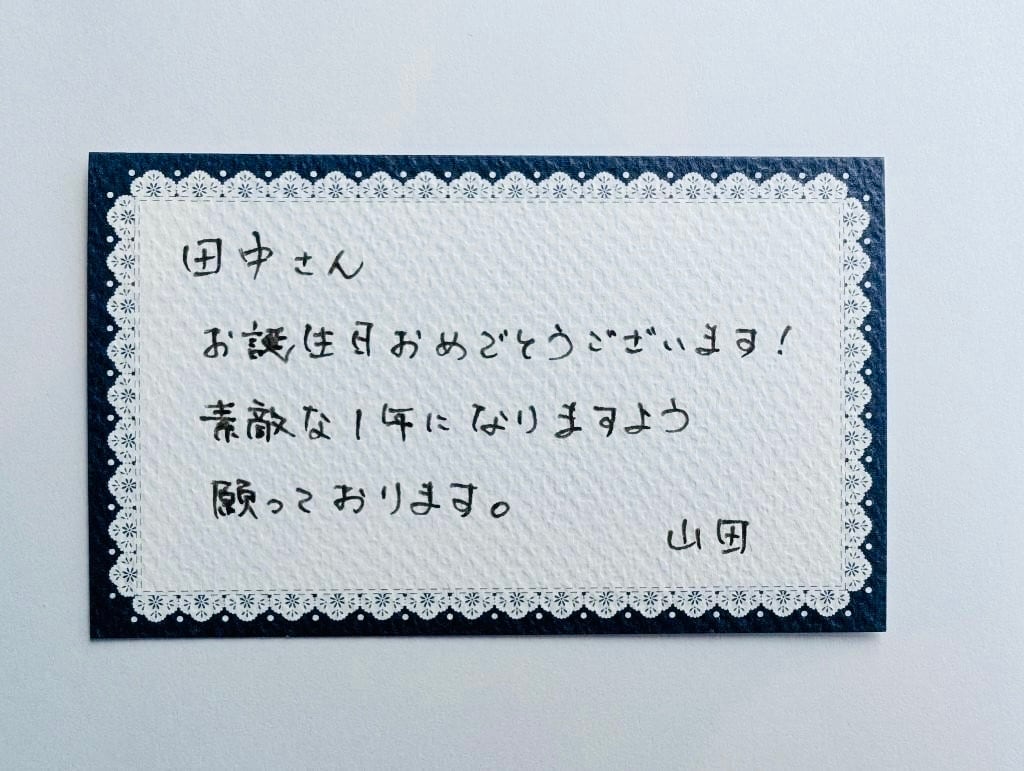 田中さん
お誕生日おめでとうございます!
素敵な1年になりますよう
願っております。
山田